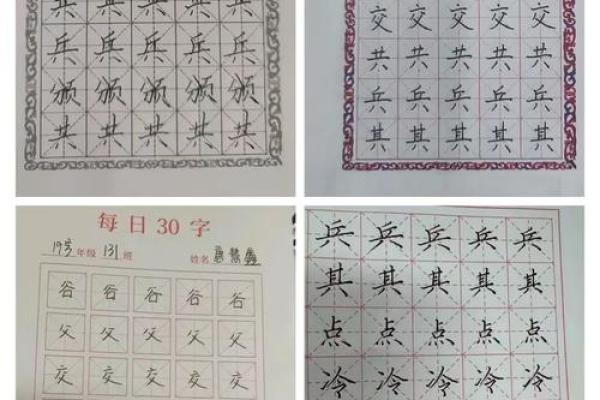 兵 兵 兵 兵 兵
颁 颁 颁 颁 颁
交 交 交 交 交
共 共 共 共 共
兵 兵 兵 兵 兵
其 其 其 其 其
每日30字
年级 131 班 姓名
谷 谷 谷 谷 谷
父 父 父 父 父
交 交 交 交 交
兵 兵 兵 兵 兵
其 其 其 其 其
点 点 点 点 点
冷 冷 冷 冷 冷